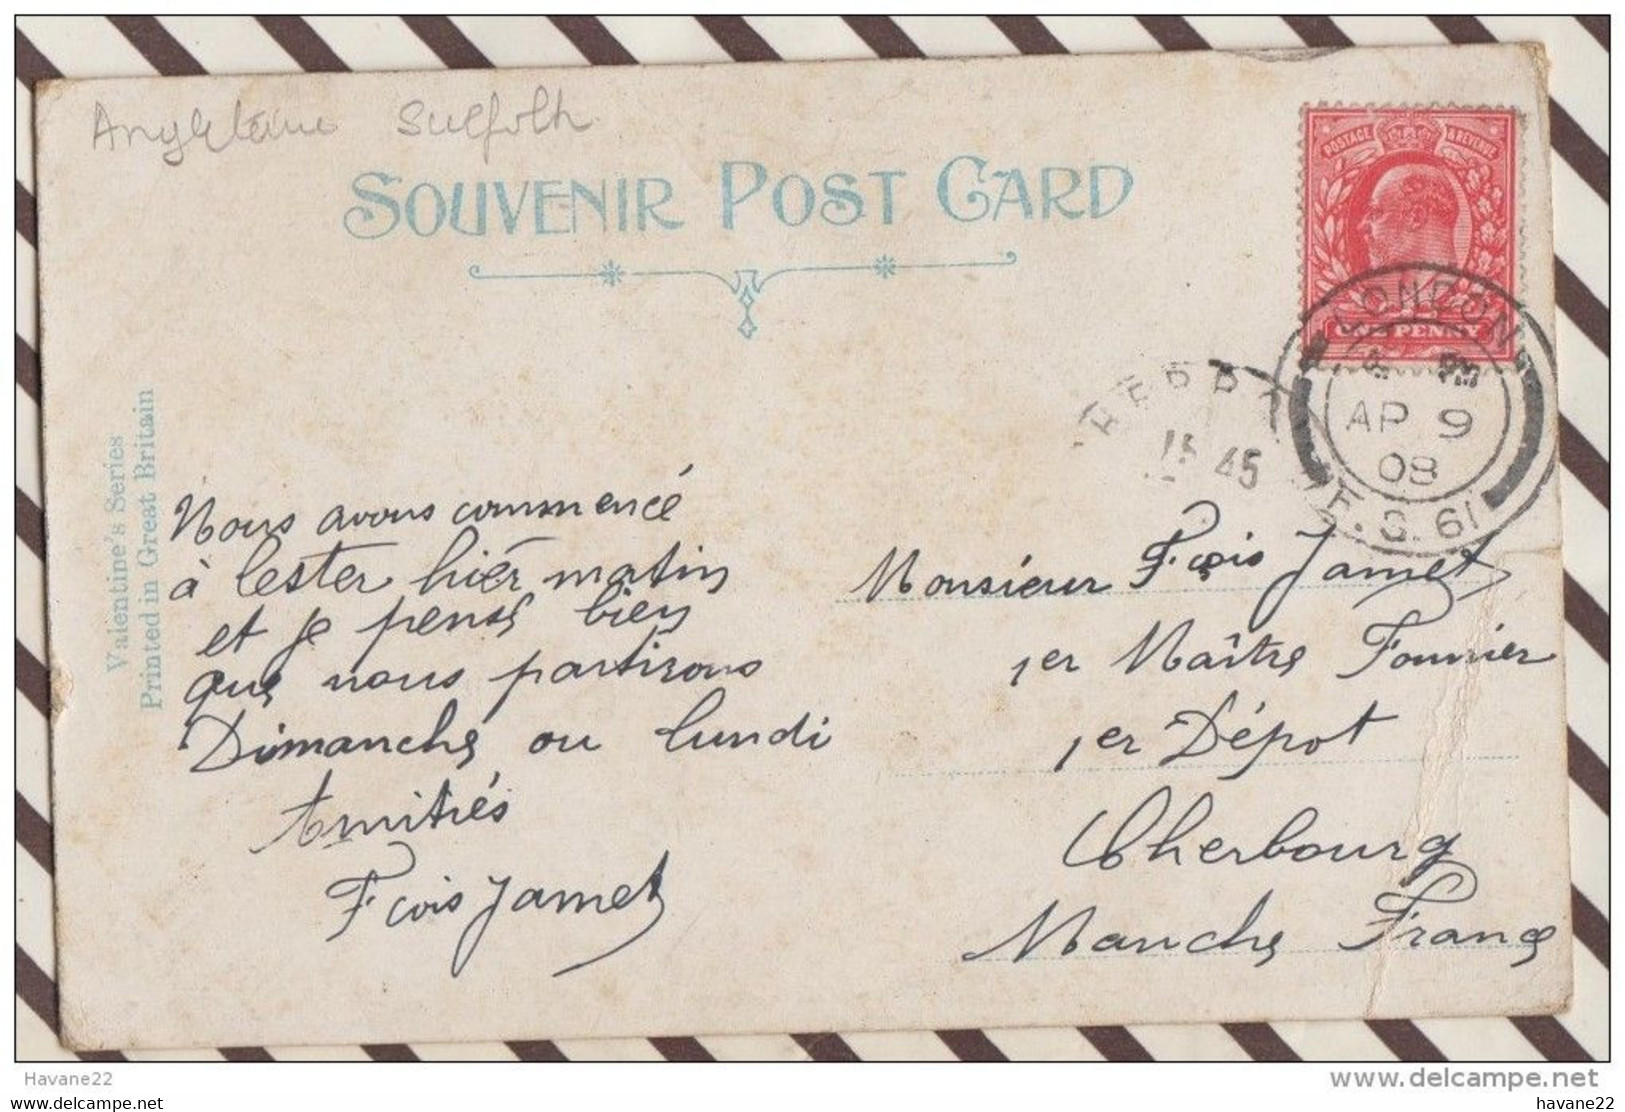 Angleterre Suffolk
SOUVENIR POST CARD
POSTAGE & REVENUE
ONE PENNY
LONDON
AP 9
08
F.S. 61
15 45
Valentine's Series
Printed in Great Britain
Nous avons commencé
à lester hier matin
et je pense bien
que nous partirons
Dimanche ou lundi
Amitiés
Fçois Jamet
Monsieur Fçois Jamet
1er Maître Fourrier
1er Dépot
Cherbourg
Manche France
Havane22
www.delcampe.net
havane22